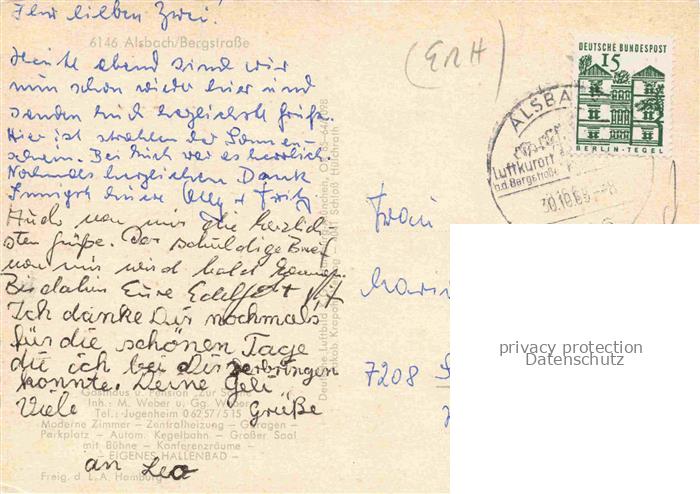 Ihr lieben Zwei!
6146 Alsbach/Bergstraße
Heute abend sind wir
nun schon wieder hier und
senden Euch herzlichste Grüße.
Hier ist strahlender Sonnen-
schein. Bei Euch war es herrlich.
Nochmals herzlichen Dank
Fritz
Auch von mir die herzlich
sten Grüße. Der schuldige Brief
von mir wird bald kommen.
Bis dahin Eure
Ich danke Dir nochmals
für die schönen Tage
die ich bei Dir verbringen
konnte. Deine Geli
Viele Grüße
an Leo
Gasthaus u. Pension "Zur
Inh.: M. Weber u. Gg. Weber
Tel.: Jugenheim 06257/515
Moderne Zimmer – Zentralheizung – Garagen –
Parkplatz – Autom. Kegelbahn – Großer Saal
mit Bühne – Konferenzräume –
– EIGENES HALLENBAD –
Freig. d. L.A. Hamburg
Deutsche Luftbild
(ERH)
DEUTSCHE BUNDESPOST
15
BERLIN-TEGEL
ALSBA
Luftkurort
a.d. Bergstraße
30.10.65
Frau
7208
privacy protection
Datenschutz